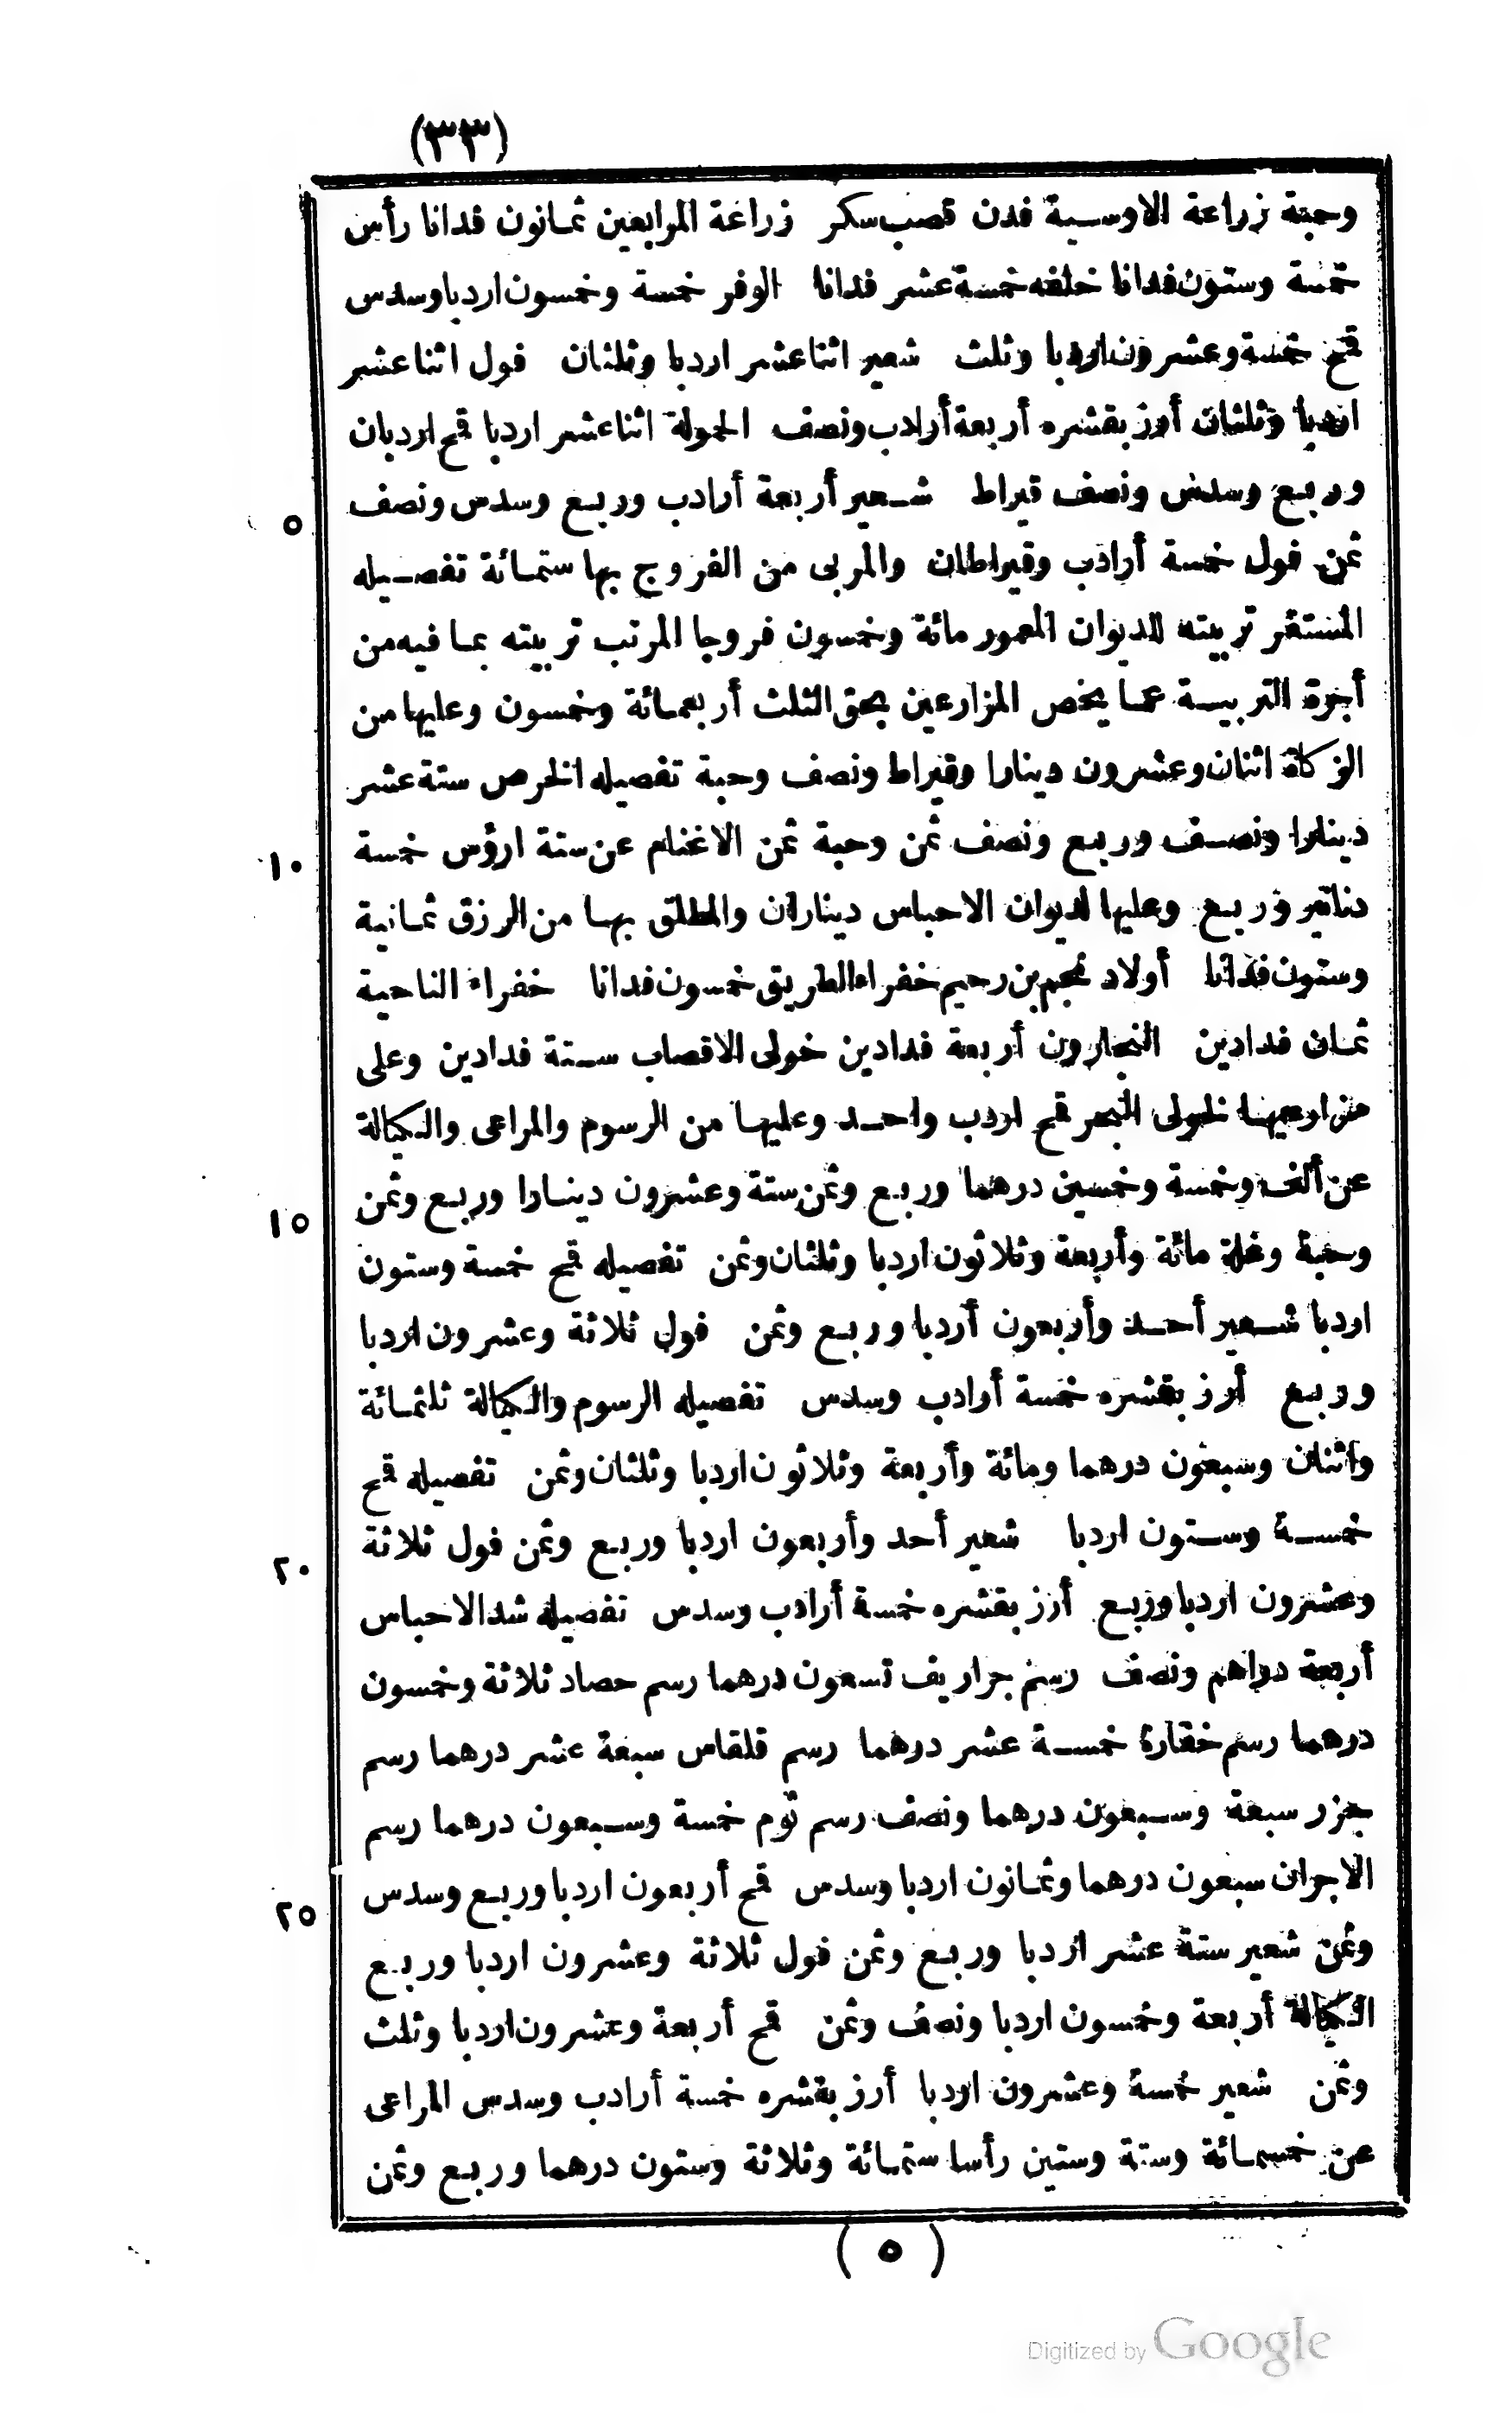 (٣٣)
وحبة زراعة الاوسية فدن قصب سكر زراعة المرابعين ثمانون فدانا رأس
خمسة وستون فدانا خلفه خمسة عشر فدانا الوفر خمسة وخمسون اردبا وسدس
قمح خمسة وعشرون اردبا وثلث شعير اثنا عشر اردبا وثلثان فول اثنا عشر
اردبا وثلثان أرز بقشره أربعة أرادب ونصف الحمولة اثنا عشر اردبا قمح اردبان
وربع وسدس ونصف قيراط شعير أربعة أرادب وربع وسدس ونصف
٥
ثمن فول خمسة أرادب وقيراطان والمربى من الفروج بها ستمائة تفصيله
المستقر تربيته للديوان المعمور مائة وخمسون فروجا المرتب تربيته بما فيه من
أجرة التربية عما يخص المزارعين بحق الثلث أربعمائة وخمسون وعليها من
الزكاة اثنان وعشرون دينارا وقيراط ونصف وحبة تفصيله الخرص ستة عشر
دينارا ونصف وربع ونصف ثمن وحبة ثمن الاغنام عن ستة ارؤس خمسة
١٠
دنانير وربع وعليها لديوان الاحباس ديناران والمطلق بها من الرزق ثمانية
وستون فدانا أولاد نجم بن رحيم خفراء الطريق خمسون فدانا خفراء الناحية
ثمان فدادين النجارون أربعة فدادين خولى الاقصاب ستة فدادين وعلى
مزارعيها لخولى البحر قمح اردب واحد وعليها من الرسوم والمراعى والكيالة
عن ألف وخمسة وخمسين درهما وربع وثمن ستة وعشرون دينارا وربع وثمن
١٥
وحبة وغلة مائة وأربعة وثلاثون اردبا وثلثان وثمن تفصيله قمح خمسة وستون
اردبا شعير أحد وأربعون أردبا وربع وثمن فول ثلاثة وعشرون اردبا
وربع أرز بقشره خمسة أرادب وسدس تفصيله الرسوم والكيالة ثلثمائة
واثنان وسبعون درهما ومائة وأربعة وثلاثون اردبا وثلثان وثمن تفصيله قمح
خمسة وستون اردبا شعير أحد وأربعون اردبا وربع وثمن فول ثلاثة
٢٠
وعشرون اردبا وربع أرز بقشره خمسة أرادب وسدس تفصيله شد الاحباس
أربعة دراهم ونصف رسم جراريف تسعون درهما رسم حصاد ثلاثة وخمسون
درهما رسم خفارة خمسة عشر درهما رسم قلقاس سبعة عشر درهما رسم
جزر سبعة وسبعون درهما ونصف رسم ثوم خمسة وسبعون درهما رسم
الاجران سبعون درهما وثمانون اردبا وسدس قمح أربعون اردبا وربع وسدس
٢٥
وثمن شعير ستة عشر اردبا وربع وثمن فول ثلاثة وعشرون اردبا وربع
الكيالة أربعة وخمسون اردبا ونصف وثمن قمح أربعة وعشرون اردبا وثلث
وثمن شعير خمسة وعشرون اردبا أرز بقشره خمسة أرادب وسدس المراعى
عن خمسمائة وستة وستين رأسا ستمائة وثلاثة وستون درهما وربع وثمن
(٥)
Digitized by Google